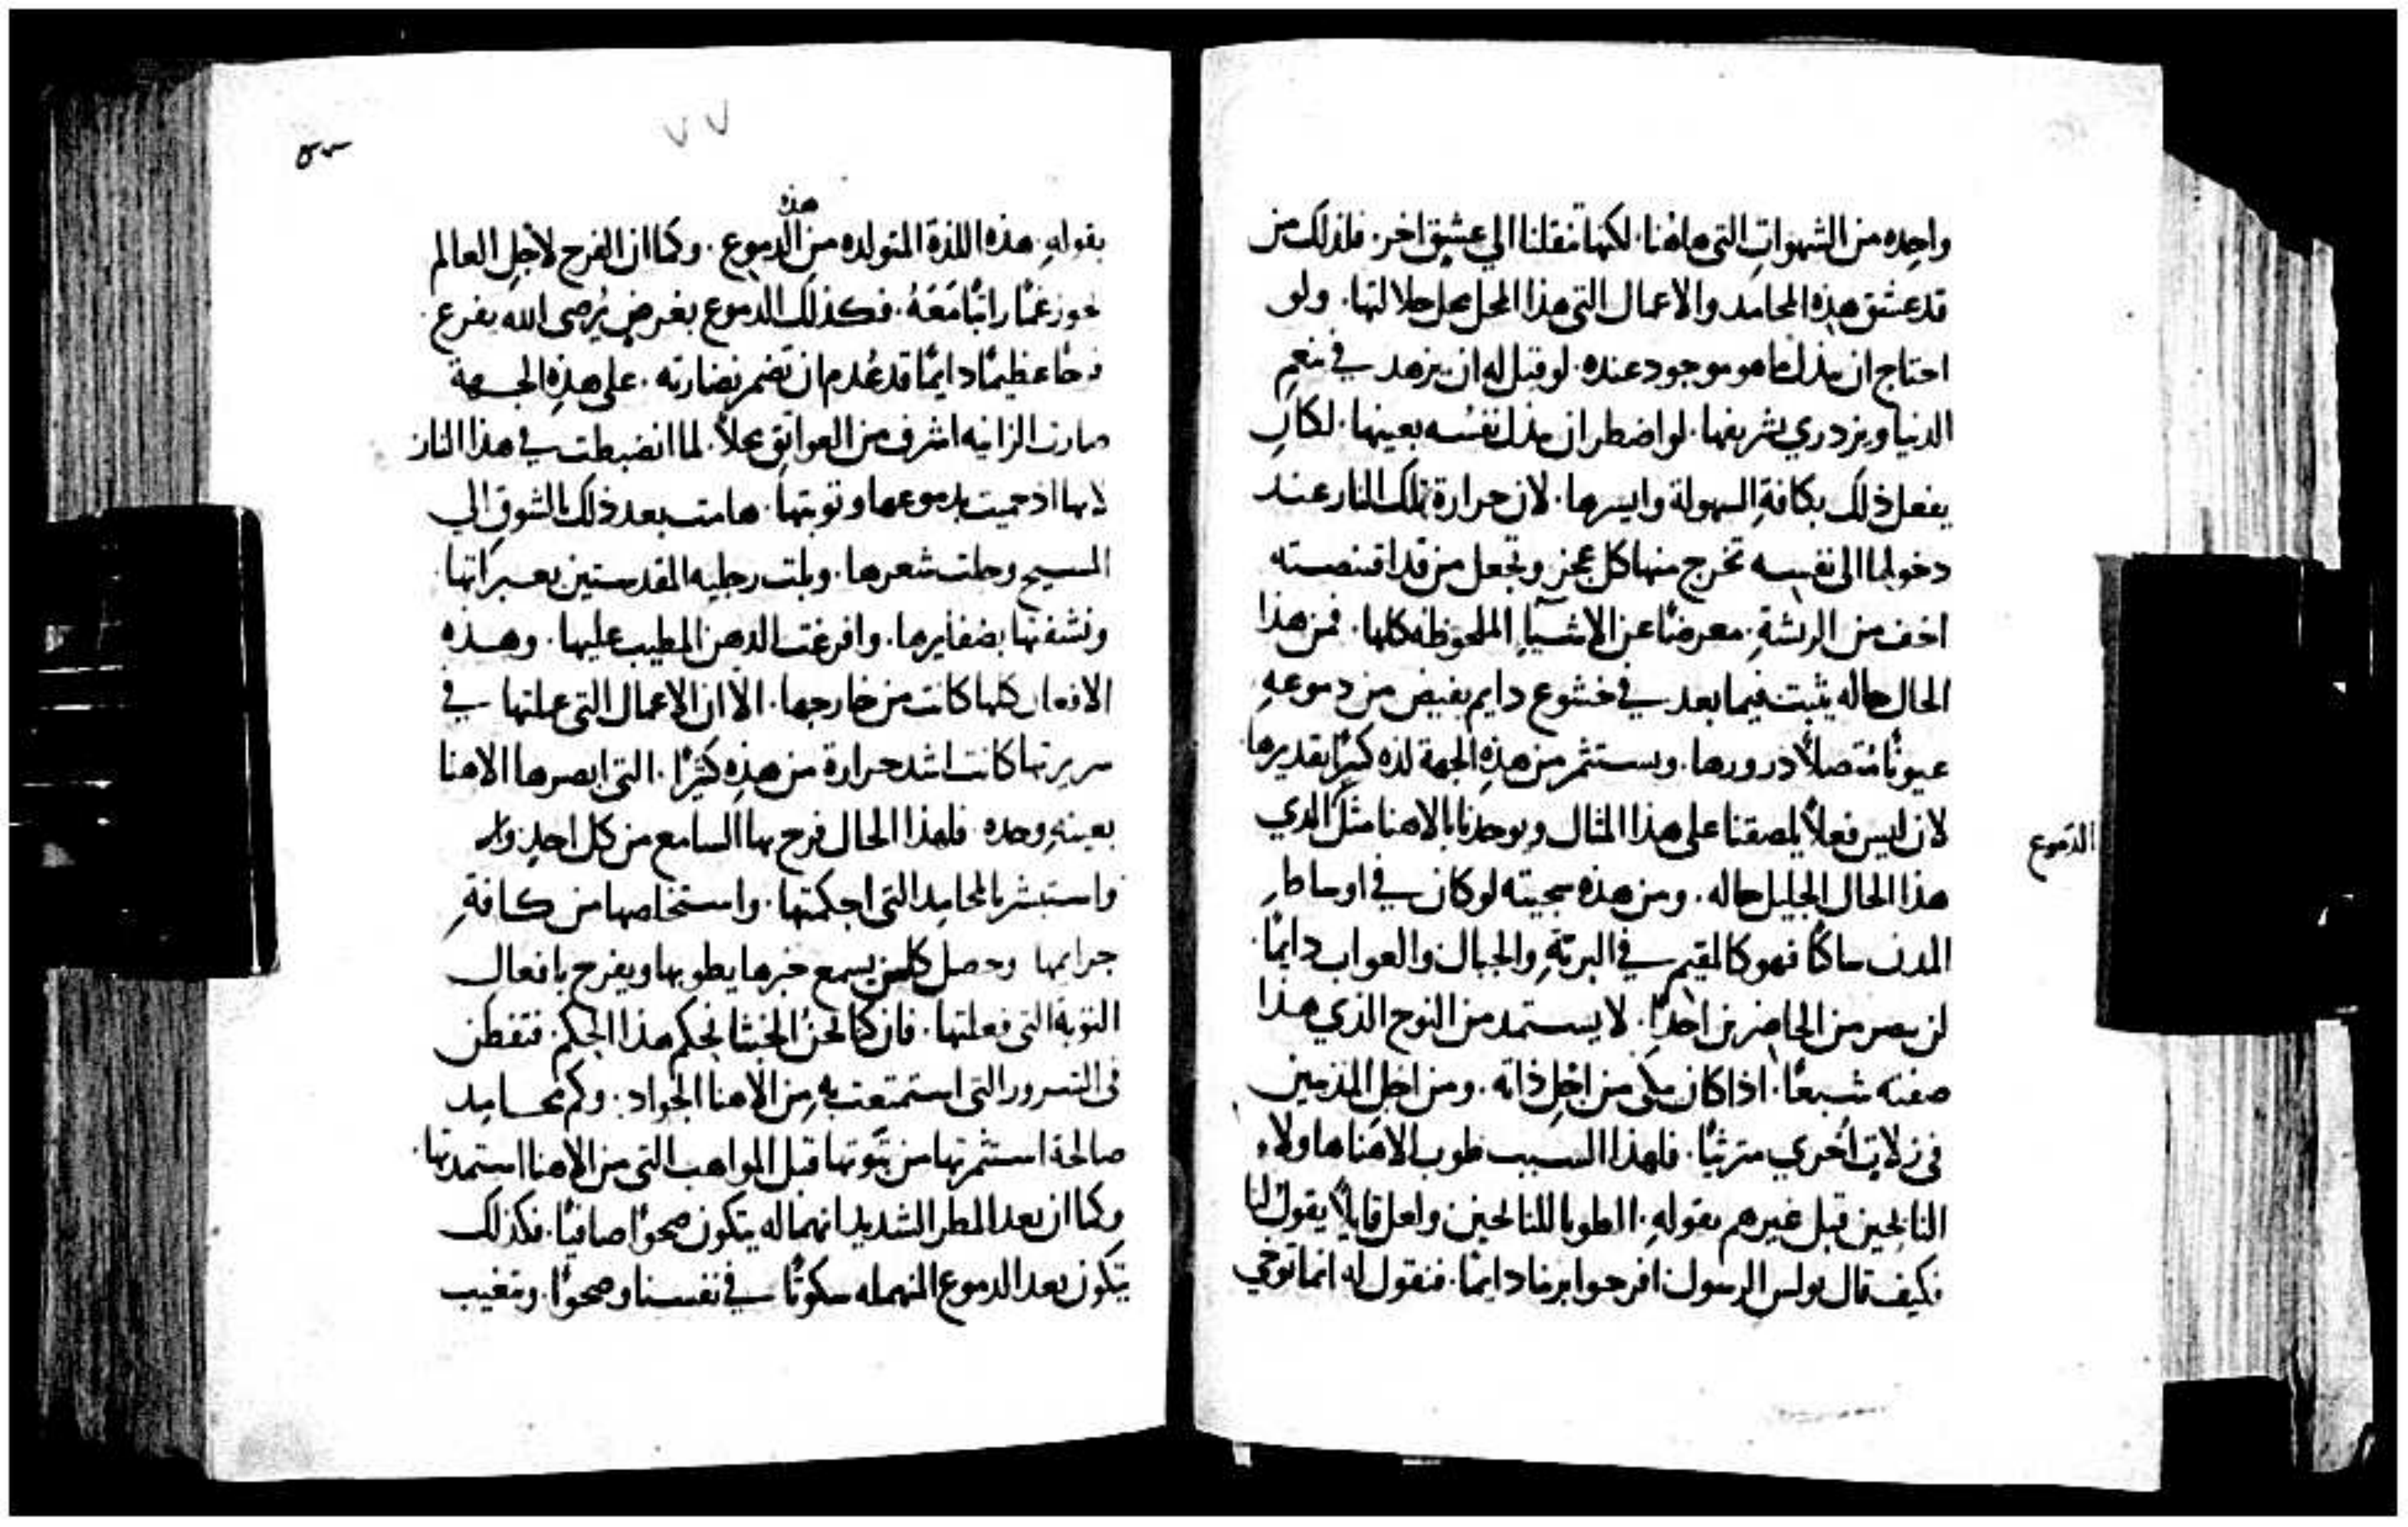 واحده من الشهوات التي هاهنا. لكنها تنقلنا الي عشق اخر. فلذلك من
قد عشق هذه المحامد والاعمال التي هذا المحل محل جلالتها. ولو
احتاج ان يبذل ما هو موجود عنده. لو قيل له ان يزهد في نعم
الدنيا ويزدري بشريفها. لو اضطر ان يبذل نفسه بعينها. لكان
يفعل ذلك بكافة السهولة وايسرها. لان حرارة تلك النار عند
دخولها الى نفسه تخرج منها كل عجز وتجعل من قد اقتنصته
اخف من الريشة. معرضًا عن الاشيآء الملحوظه كلها. فمن هذا
الحال حاله يثبت فيما بعد في خشوع دايم يفيض من دموعه
عيونًا متصلاً درورها. ويستثمر من هذه الجهة لذه كبيرًا تقديرها
لان ليس فعلاً يلصقنا على هذا المثال ويوحدنا بالاهنا مثل الذي
الدموع
هذا الحال الجليل حاله. ومن هذه سجيته لو كان في اوساط
المدن ساكنًا فهو كالمقيم في البريّة والجبال والغواب دايمًا.
لن يبصر من الحاضرين احدًا. لا يستمد من النوح الذي هذا
صفته شبعًا. اذا كان يبكي من اجل ذاته. ومن اجل المذنبين
في زلات اخري مترثيًا. فلهذا السبب طوب الاهنا هاولاء
النايحين قبل غيرهم بقوله. الطوبا للنايحين ولعل قايلاً يقول لنا
فكيف قال بولس الرسول افرحوا بربنا دايمًا. فنقول له انما توخي
٧٧
هذه
بقوله. هذه اللذة المتولده من الدموع. وكما ان الفرح لاجل العالم
يحوز غمًا راتبًا معه. فكذلك الدموع بغرض يُرضى الله يفرع
فرحًا عظيمًا دايمًا قد عُدم ان تضمر نضارته. على هذه الجهة
صارت الزانيه اشرف من العواتق محلاً. لما انضبطت في هذا النار
لانها اذ حميت بدموعها وتوبتها. هامت بعد ذلك بالشوق الي
المسيح وحلت شعرها. وبلت رجليه المقدستين بعبراتها
ونشفتها بضفايرها. وافرغت الدهن المطيب عليها. وهذه
الافعال كلها كانت من خارجها. الا ان الاعمال التي عملتها في
سريرتها كانت اشد حرارة من هذه كثيرًا. التي ابصرها الاهنا
بعينه وحده. فلهذا الحال فرح بها السامع من كل احد
واستبشر بالمحامد التي احكمتها. واستخلصها من كافة
جرايمها وحصل كلمن يسمع خبرها يطوبها ويفرح بافعال
التوبة التي فعلتها. فان كنا نحن الخبثا نحكم هذا الحكم. فتفطن
في السرور التي استمتعت به من الاهنا الجواد. وكم محامد
صالحة استثمرتها من توبتها قبل المواهب التي من الاهنا استمدتها.
وكما ان بعد المطر الشديد انهماله يتكون صحوًا صافيًا. فكذلك
يتكون بعد الدموع المنهمله سكونًا في نفسنا وصحوًا. وتغيب